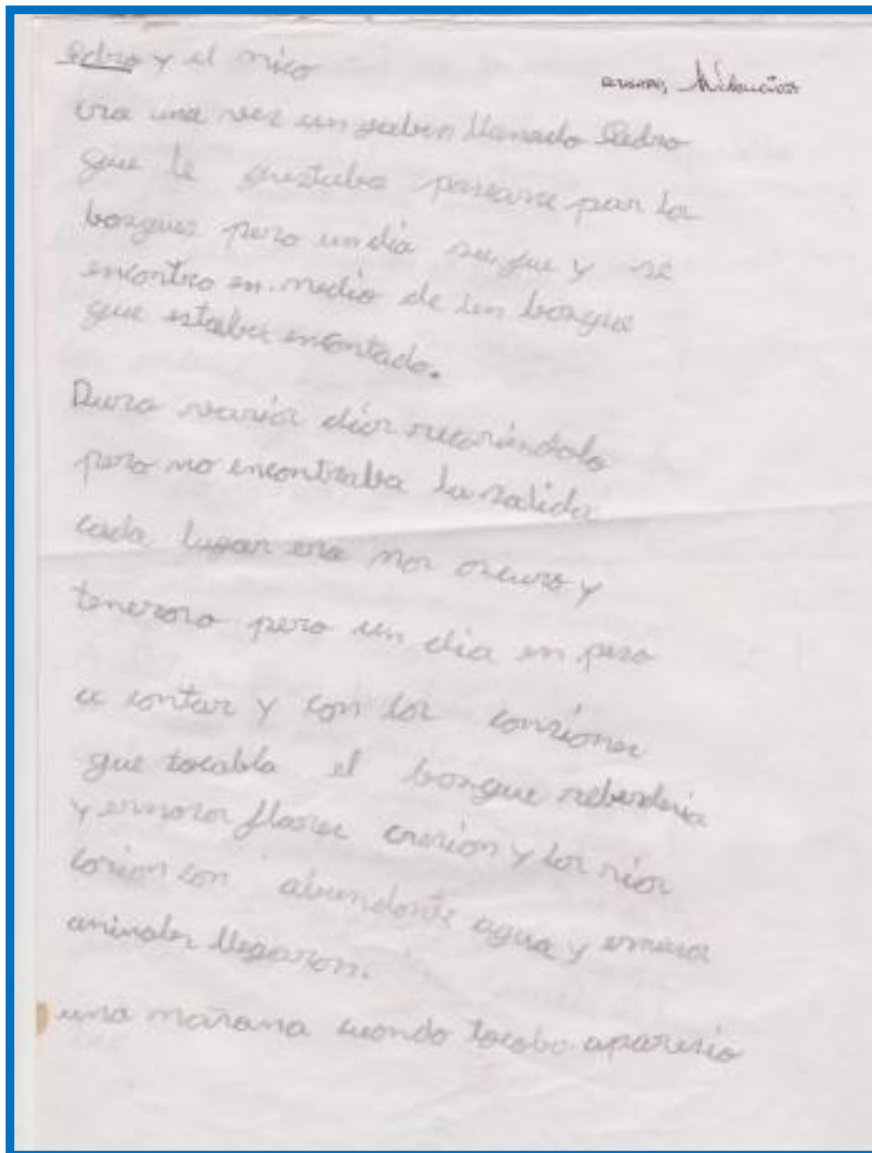 Pedro y el mico
era una vez un llamado Pedro
que le gustaba pasiarse por los
bosques pero un dia se fue y se
encontro en medio de un bosque
que estaba encantado.
Duro varios dias recoriéndolo
pero no encontraba la salida
cada lugar era mas oscuro y
teneroso pero un dia en peso
a contar y con las consiones
que tocabla el bosque reberdesia
y ermosas flores cresion y los rios
corion con abundante agua y ermosos
animales llegaron.
una mañana cuondo tocobo aparesio